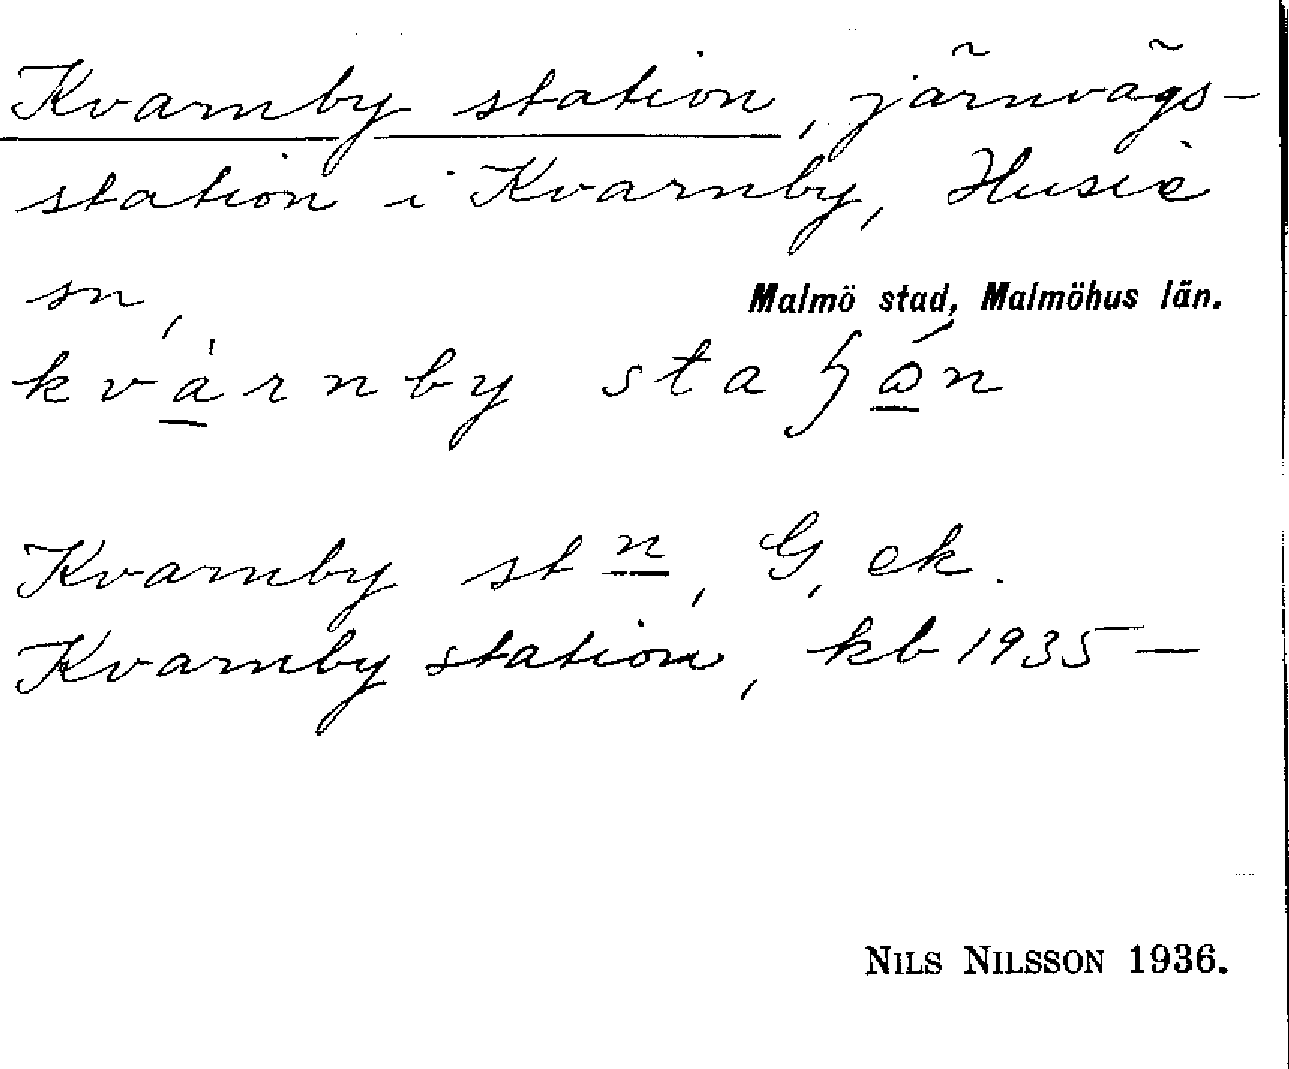 Kvarnby station, järnvägs-
station i Kvarnby, Husie
sn, Malmö stad, Malmöhus län.
kvàrnby staɧón
Kvarnby stn, G, ek.
Kvarnby station, kb 1935—
NILS NILSSON 1936.